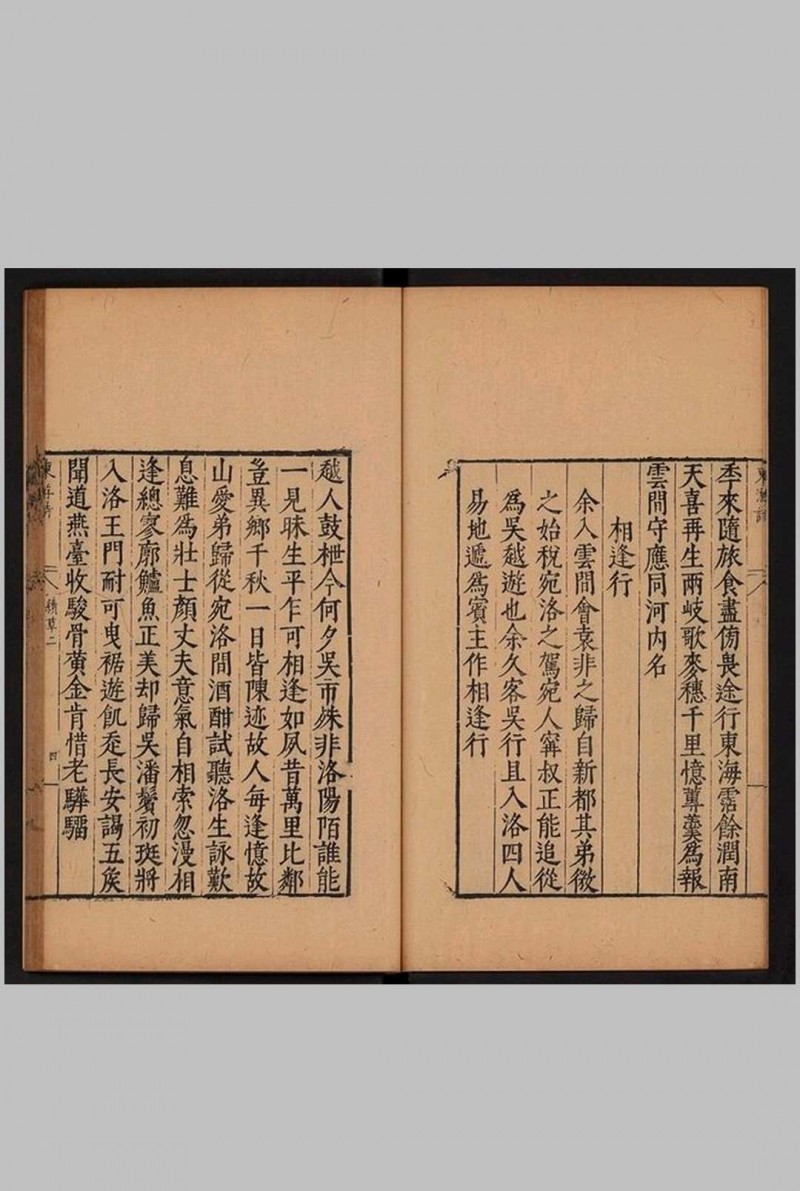 季來隨旅食盡俯畏途行東海霑餘潤南
天喜再生兩岐歌麥穗千里憶蓴羹爲報
雲間守應同河内名
相逢行
余入雲間會袁非之歸自新都其弟微
之始稅宛洛之駕宛人甯叔正能追從
爲吳越遊也余久客吳行且入洛四人
易地遞爲賓主作相逢行
越人鼓枻今何夕吳市殊非洛陽陌誰能
一見昧生平乍可相逢如夙昔萬里比鄰
豈異鄉千秋一日皆陳迹故人每逢憶故
山愛弟歸從宛洛間酒酣試聽洛生詠歎
息難爲壯士顏丈夫意氣自相索忽漫相
逢總寥廓鱸魚正美却歸吳潘鬢初斑將
入洛王門耐可曳裾遊飢走長安謁五矦
聞道燕臺收駿骨黃金肯惜老驊騮
續草二
四